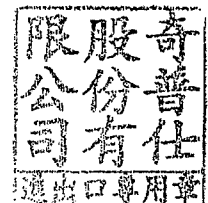 奇普仕
股份有
限公司
進出口專用章